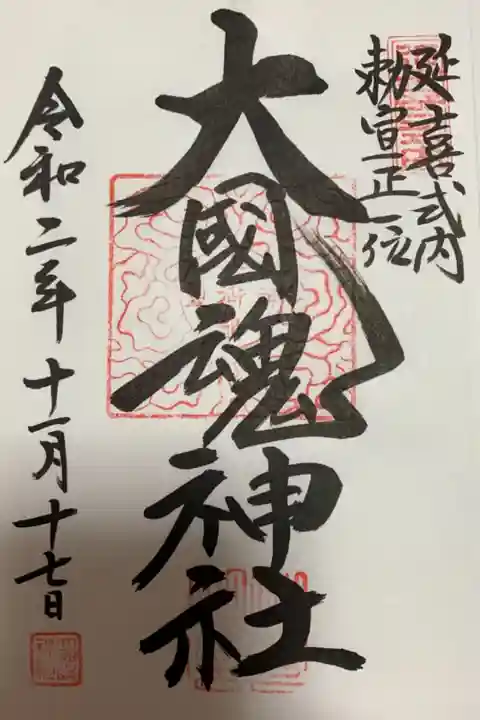 延喜式内
勅宣正一位
大國魂神社
令和二年十一月十七日